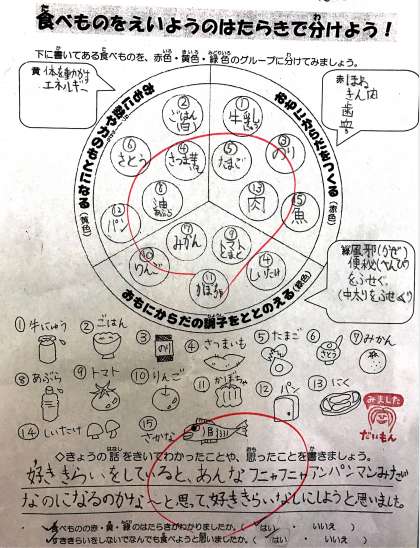 食べものをえいようのはたらきで分けよう！
下に書いてある食べものを、赤色・黄色・緑色のグループに分けてみましょう。
黄 体を動かす
エネルギー
赤 ほね
きん肉
歯
血
(黄色)
おもにからだをつくる (赤色)
おもにからだの調子をととのえる (緑色)
② ごはん
① 牛乳
⑥ さとう
④ さつま芋
⑤ たまご
③ のり
⑧ 油 あぶら
⑬ 肉
⑮ 魚
⑫ パン
⑦ みかん
⑨ トマト
⑩ りんご
⑪ かぼちゃ
⑭ しいたけ
緑 風邪(かぜ)
便秘(べんぴ)
をふせぐ
① 牛にゅう
② ごはん
③ のり
④ さつまいも
⑤ たまご
⑥ さとう
⑦ みかん
⑧ あぶら
⑨ トマト
⑩ りんご
⑪ かぼちゃ
⑫ パン
⑬ にく
みました
だいもん
⑭ しいたけ
⑮ さかな
◇きょうの話をきいてわかったことや、思ったことを書きましょう。
好ききらいをしていると、あんなフニャフニャアンパンマンみたい
なのになるのかな〜と思って好ききらいなしにしようと思いました。
・食べものの赤・黄・緑のはたらきがわかりましたか。（ はい ・ いいえ ）
・すききらいをしないでなんでも食べようと思いましたか。（ はい ・ いいえ ）